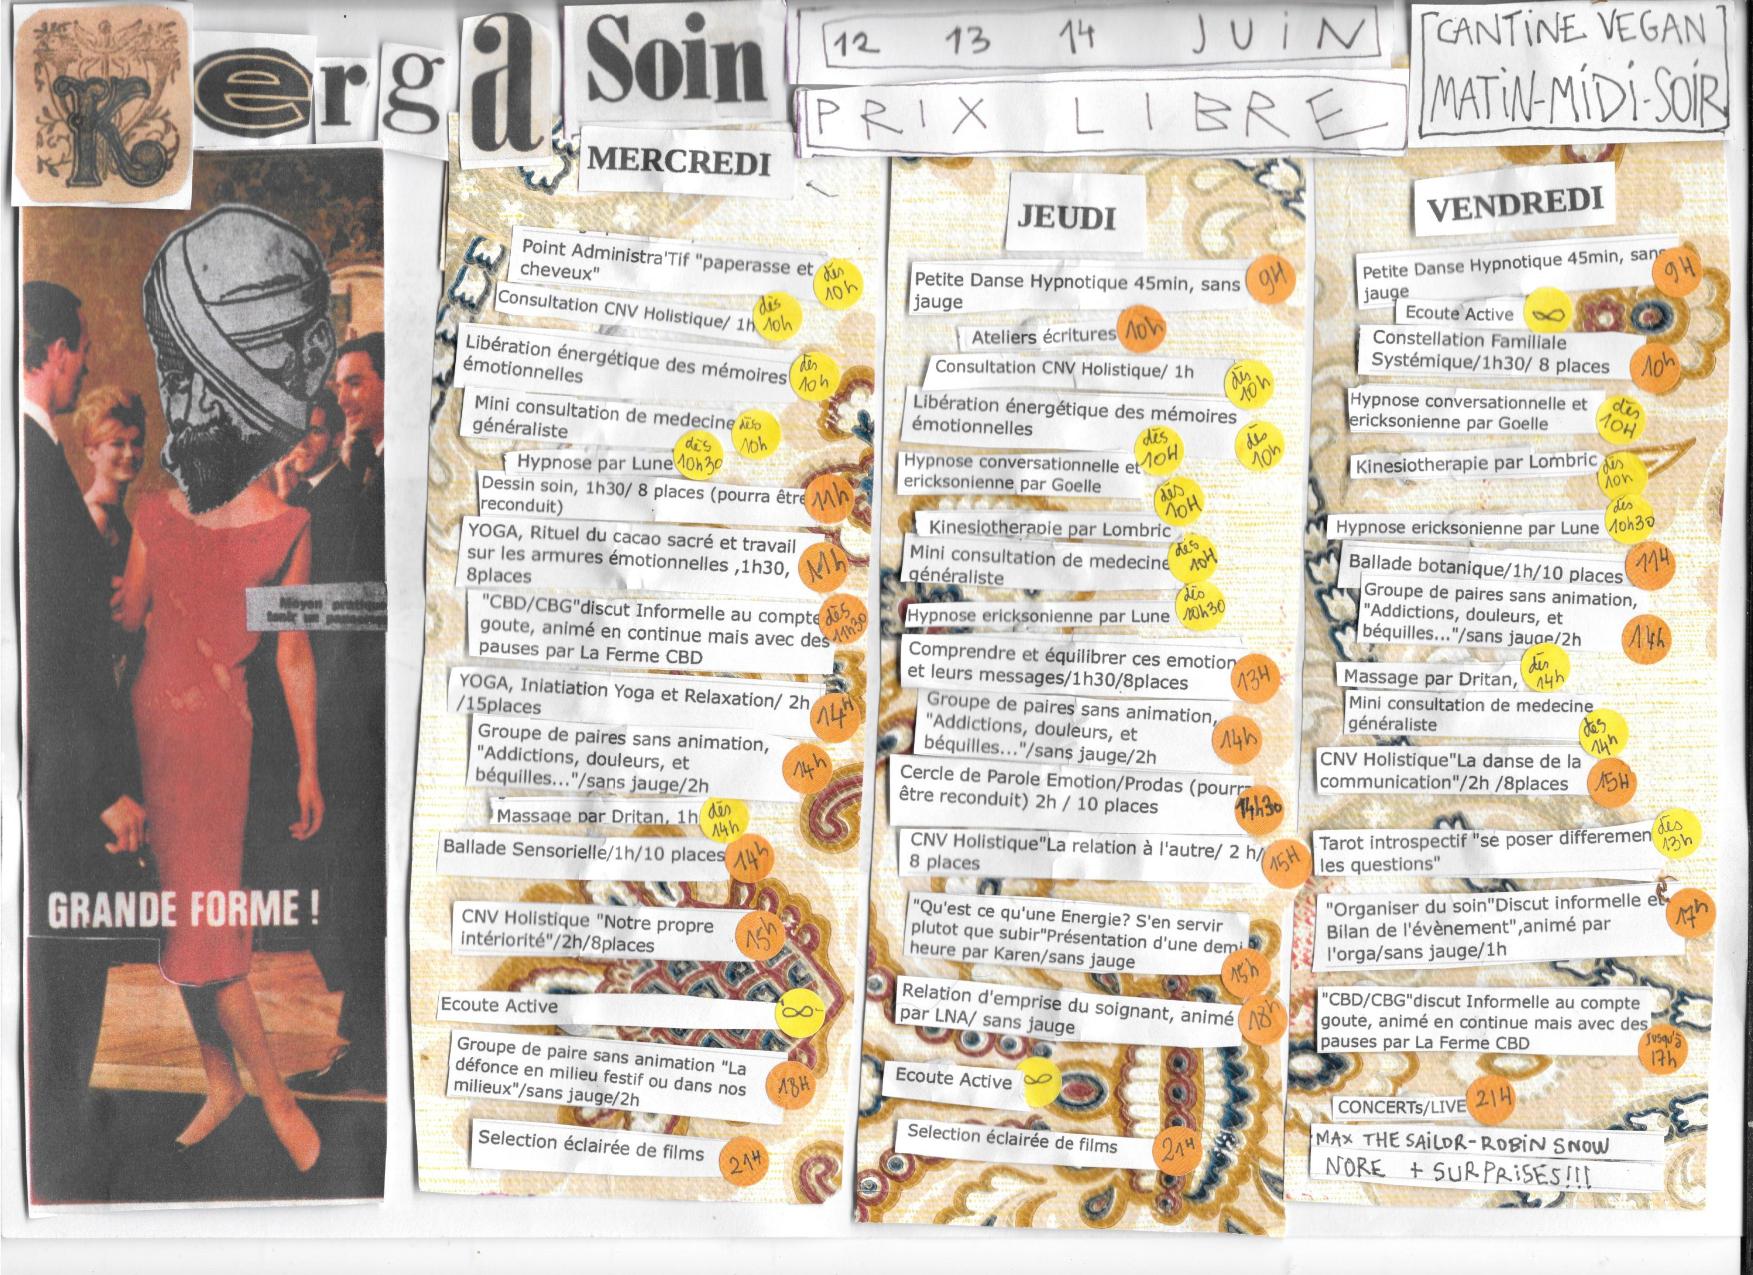 Kerga Soin
12 13 14 JUiN
PRIX LIBRE
CANTiNE VEGAN
MATiN-MiDi-SOiR
Moyen pratique
GRANDE FORME !
MERCREDI
Point Administra'Tif "paperasse et
cheveux" dès 10h
Consultation CNV Holistique/ 1h dès 10h
Libération énergétique des mémoires
émotionnelles dès 10h
Mini consultation de medecine
généraliste dès 10h
Hypnose par Lune dès 10h30
Dessin soin, 1h30/ 8 places (pourra être
reconduit) 11h
YOGA, Rituel du cacao sacré et travail
sur les armures émotionnelles ,1h30,
8places 11h
"CBD/CBG"discut Informelle au compte
goute, animé en continue mais avec des
pauses par La Ferme CBD dès 11h30
YOGA, Iniatiation Yoga et Relaxation/ 2h
/15places 14H
Groupe de paires sans animation,
"Addictions, douleurs, et
béquilles..."/sans jauge/2h 14h
Massage par Dritan, 1h dès 14h
Ballade Sensorielle/1h/10 places 14h
CNV Holistique "Notre propre
intériorité"/2h/8places 15h
Ecoute Active ∞
Groupe de paire sans animation "La
défonce en milieu festif ou dans nos
milieux"/sans jauge/2h 18H
Selection éclairée de films 21H
JEUDI
Petite Danse Hypnotique 45min, sans
jauge 9H
Ateliers écritures 10h
Consultation CNV Holistique/ 1h dès 10h
Libération énergétique des mémoires
émotionnelles dès 10h
Hypnose conversationnelle et
ericksonienne par Goelle dès 10H
Kinesiotherapie par Lombric dès 10H
Mini consultation de medecine
généraliste dès 10H
Hypnose ericksonienne par Lune dès 10h30
Comprendre et équilibrer ces emotion
et leurs messages/1h30/8places 13H
Groupe de paires sans animation,
"Addictions, douleurs, et
béquilles..."/sans jauge/2h 14h
Cercle de Parole Emotion/Prodas (pourra
être reconduit) 2h / 10 places 14h30
CNV Holistique"La relation à l'autre/ 2 h/
8 places 15H
"Qu'est ce qu'une Energie? S'en servir
plutot que subir"Présentation d'une demi
heure par Karen/sans jauge 15h
Relation d'emprise du soignant, animé
par LNA/ sans jauge 18h
Ecoute Active ∞
Selection éclairée de films 21H
VENDREDI
Petite Danse Hypnotique 45min, sans
jauge 9H
Ecoute Active ∞
Constellation Familiale
Systémique/1h30/ 8 places 10h
Hypnose conversationnelle et
ericksonienne par Goelle dès 10H
Kinesiotherapie par Lombric dès 10h
Hypnose ericksonienne par Lune dès 10h30
Ballade botanique/1h/10 places 11H
Groupe de paires sans animation,
"Addictions, douleurs, et
béquilles..."/sans jauge/2h 14h
Massage par Dritan, dès 14h
Mini consultation de medecine
généraliste dès 14h
CNV Holistique"La danse de la
communication"/2h /8places 15H
Tarot introspectif "se poser differemen
les questions" dès 13h
"Organiser du soin"Discut informelle et
Bilan de l'évènement",animé par
l'orga/sans jauge/1h 17h
"CBD/CBG"discut Informelle au compte
goute, animé en continue mais avec des
pauses par La Ferme CBD jusqu'à 17h
CONCERTs/LIVE 21H
MAX THE SAiLOR-ROBIN SNOW
NORE + SURPRiSES!!!